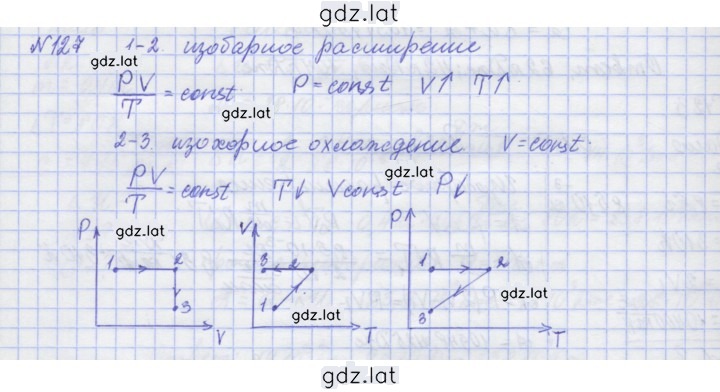 gdz.lat
№127 1-2. изобарное расширение
gdz.lat
PV/T = const. P=const V↑ T↑
gdz.lat
2-3. изохорное охлаждение V=const.
gdz.lat
PV/T = const T↓ Vconst P↓
P gdz.lat V P
1 2 3 2 1 2
gdz.lat
3 1 3
gdz.lat
V T T
gdz.lat